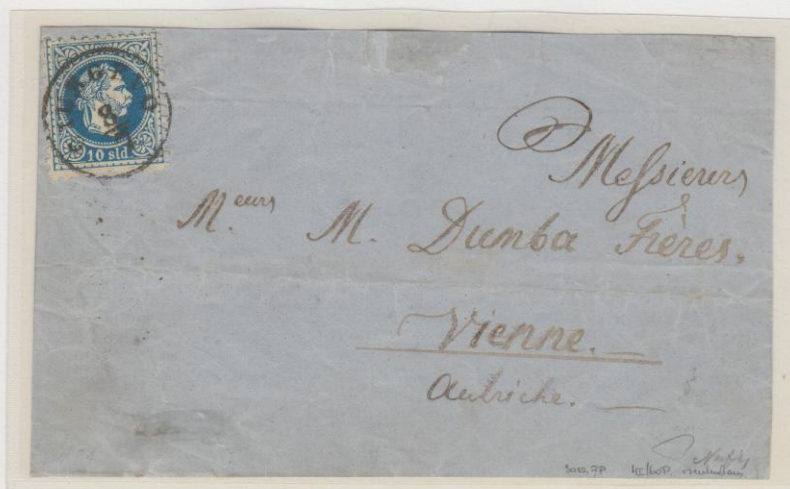 8
10 sld.
Messieurs
M.eurs M. Dumba Frères.
Vienne.
Autriche.